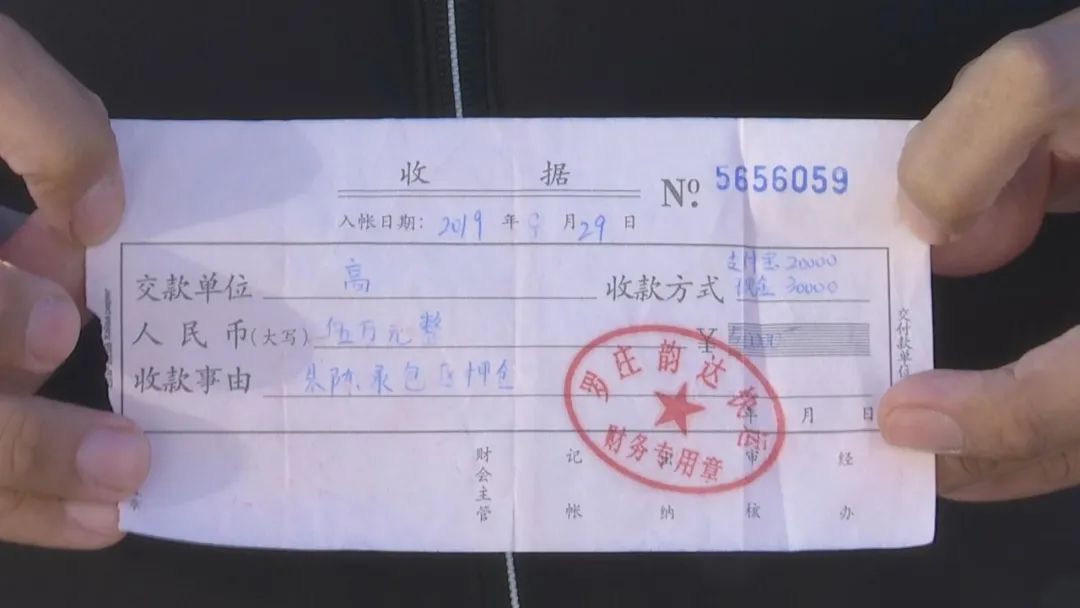 收 据
№ 5656059
入帐日期: 2019 年 9 月 29 日
交款单位 高 收款方式 支付宝20000 现金 30000
人民币(大写) 伍万元整 ¥ 50000
收款事由 承包区押金
年 月 日
财会主管 记帐 出纳 审核 经办
交付款单位
罗庄韵达
财务专用章